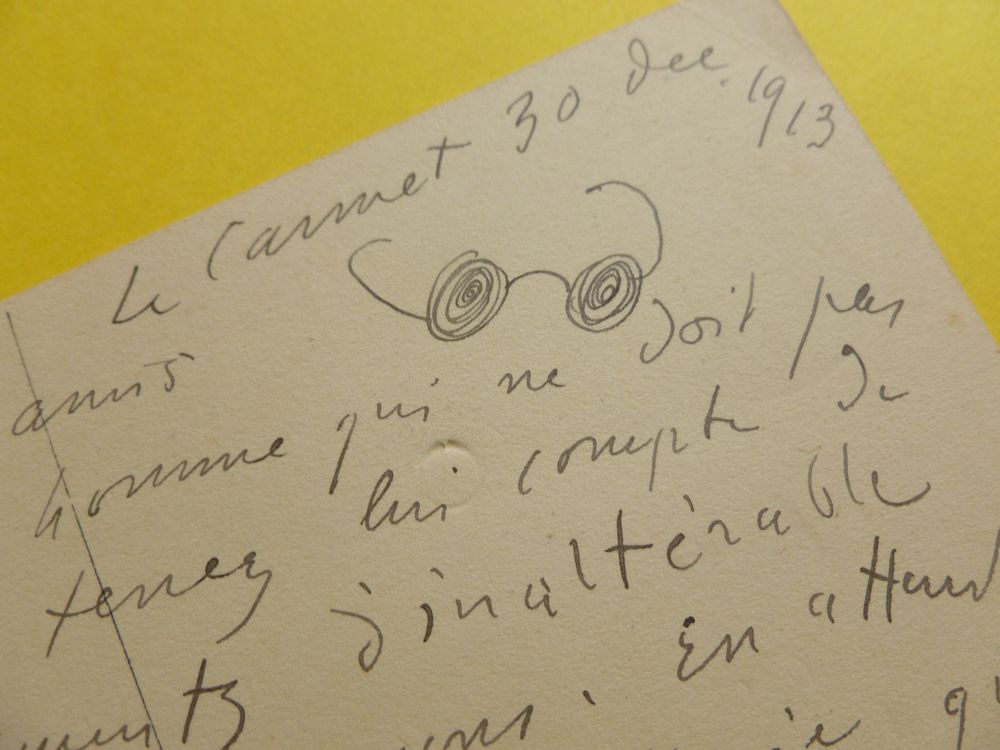 Le Cannet 30 Dec. 1913
amis
homme qui ne doit pas
tenez lui compte de
inaltérable
En attend